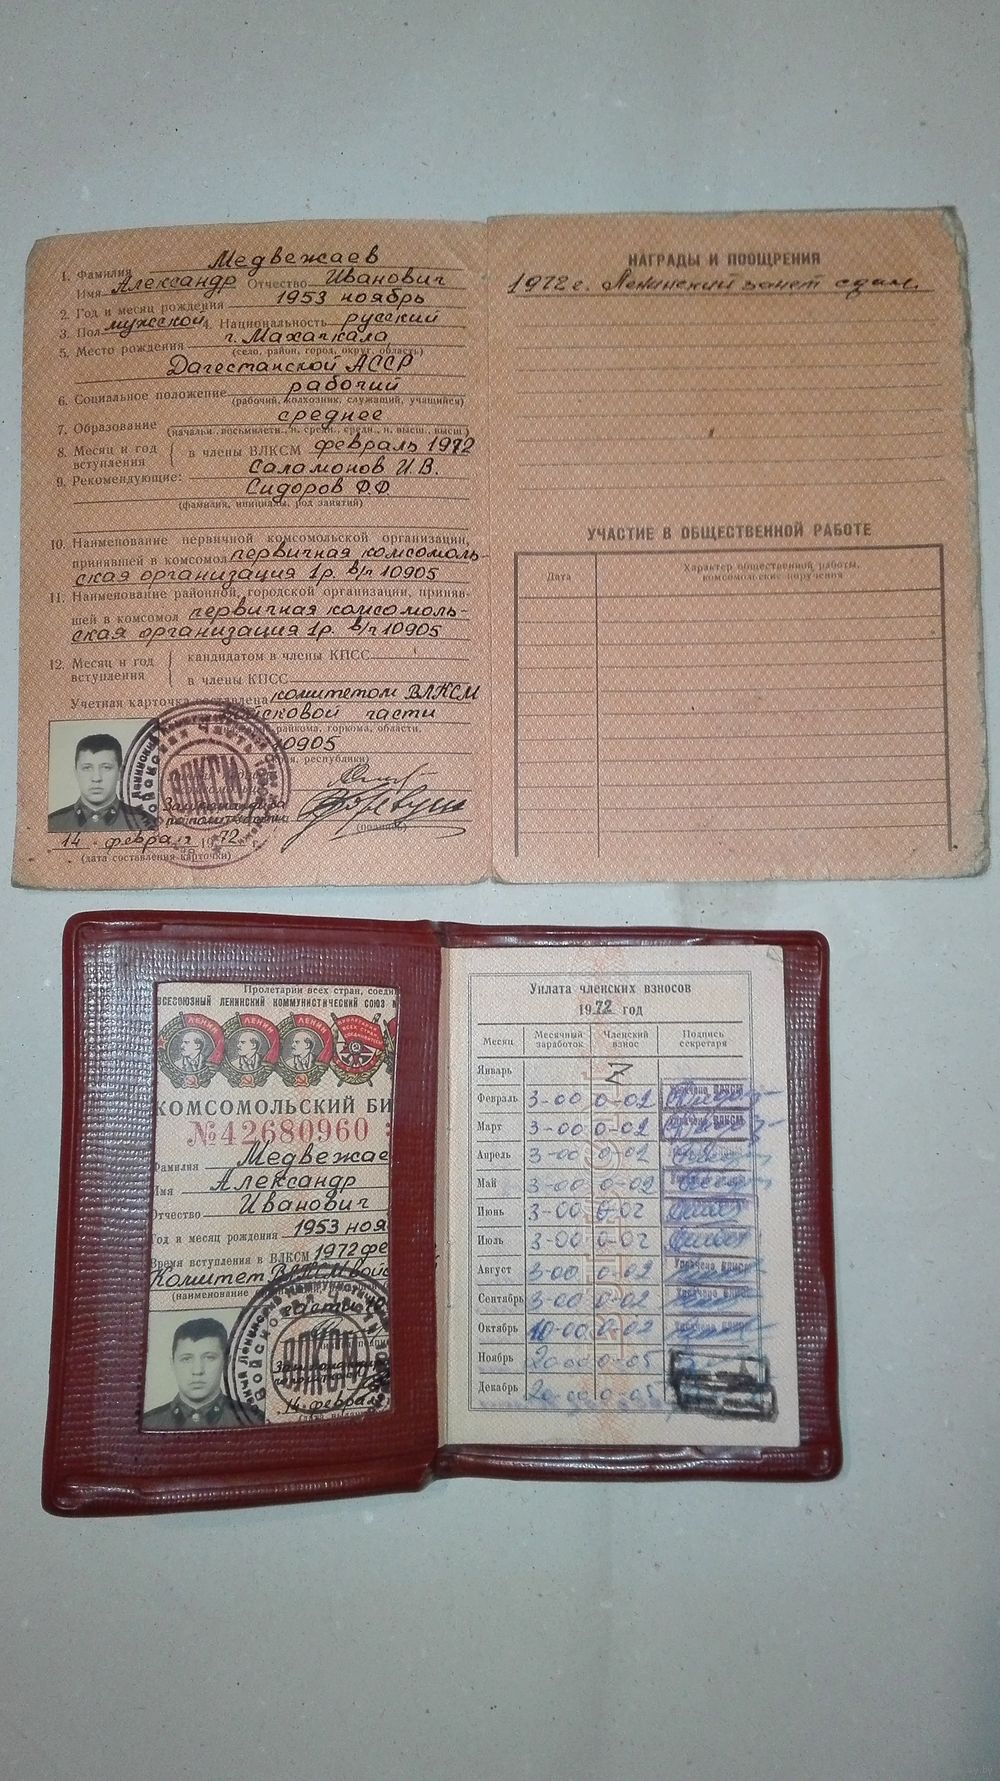 1. Фамилия Медвежаев
Имя Александр Отчество Иванович
2. Год и месяц рождения 1953 ноябрь
3. Пол мужской 4. Национальность русский
5. Место рождения г. Махачкала
(село, район, город, округ, область)
Дагестанской АССР
6. Социальное положение рабочий
(рабочий, колхозник, служащий, учащийся)
7. Образование среднее
(начальн., восьмилетн., н. средн., средн., н. высш., высш.)
8. Месяц и год вступления в члены ВЛКСМ февраль 1972
9. Рекомендующие: Саламонов И.В.
Сидоров Ф.Ф.
(фамилия, инициалы, род занятий)
10. Наименование первичной комсомольской организации,
принявшей в комсомол первичная комсомоль-
ская организация 1р. в/ч 10905
11. Наименование районной, городской организации, приняв-
шей в комсомол первичная комсомоль-
ская организация 1р. в/ч 10905
12. Месяц и год вступления кандидатом в члены КПСС
в члены КПСС
Учетная карточка составлена комитетом ВЛКСМ
войсковой части
райкома, горкома, области,
10905
республики)
ВЛКСМ
(подпись)
14 февраля 1972 г.
(дата составления карточки)
НАГРАДЫ И ПООЩРЕНИЯ
1972 г. Ленинский зачет сдал.
УЧАСТИЕ В ОБЩЕСТВЕННОЙ РАБОТЕ
Дата Характер общественной работы,
комсомольские поручения
Пролетарии всех стран, соеди
ВСЕСОЮЗНЫЙ ЛЕНИНСКИЙ КОММУНИСТИЧЕСКИЙ СОЮЗ М
ЛЕНИН ЛЕНИН ЛЕНИН
КОМСОМОЛЬСКИЙ БИ
№42680960
Фамилия Медвежае
Имя Александр
Отчество Иванович
Год и месяц рождения 1953 ноя
Время вступления в ВЛКСМ 1972 фе
Комитет ВЛКСМ войс
(наименование
части 10
ВЛКСМ
14 феврал
Уплата членских взносов
1972 год
Месяц Месячный заработок Членский взнос Подпись секретаря
Январь Z
Февраль 3-00 0-02
Март 3-00 0-02
Апрель 3-00 0-02
Май 3-00 0-02
Июнь 3-00 0-02
Июль 3-00 0-02
Август 3-00 0-02
Сентябрь 3-00 0-02
Октябрь 10-00 0-02
Ноябрь 20-00 0-05
Декабрь 20-00 0-05